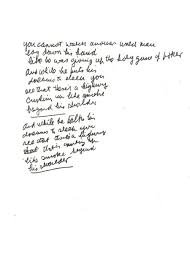 you cannot watch another watch man
lay down his hand
like he was giving up the holy game of poker
And while he puts his
dreams to sleep you
see that there's a highway
Curlin up like smoke
beyond his shoulder
And while he talks his
dreams to sleep you
see that highway
that up
like smoke beyond
his shoulder